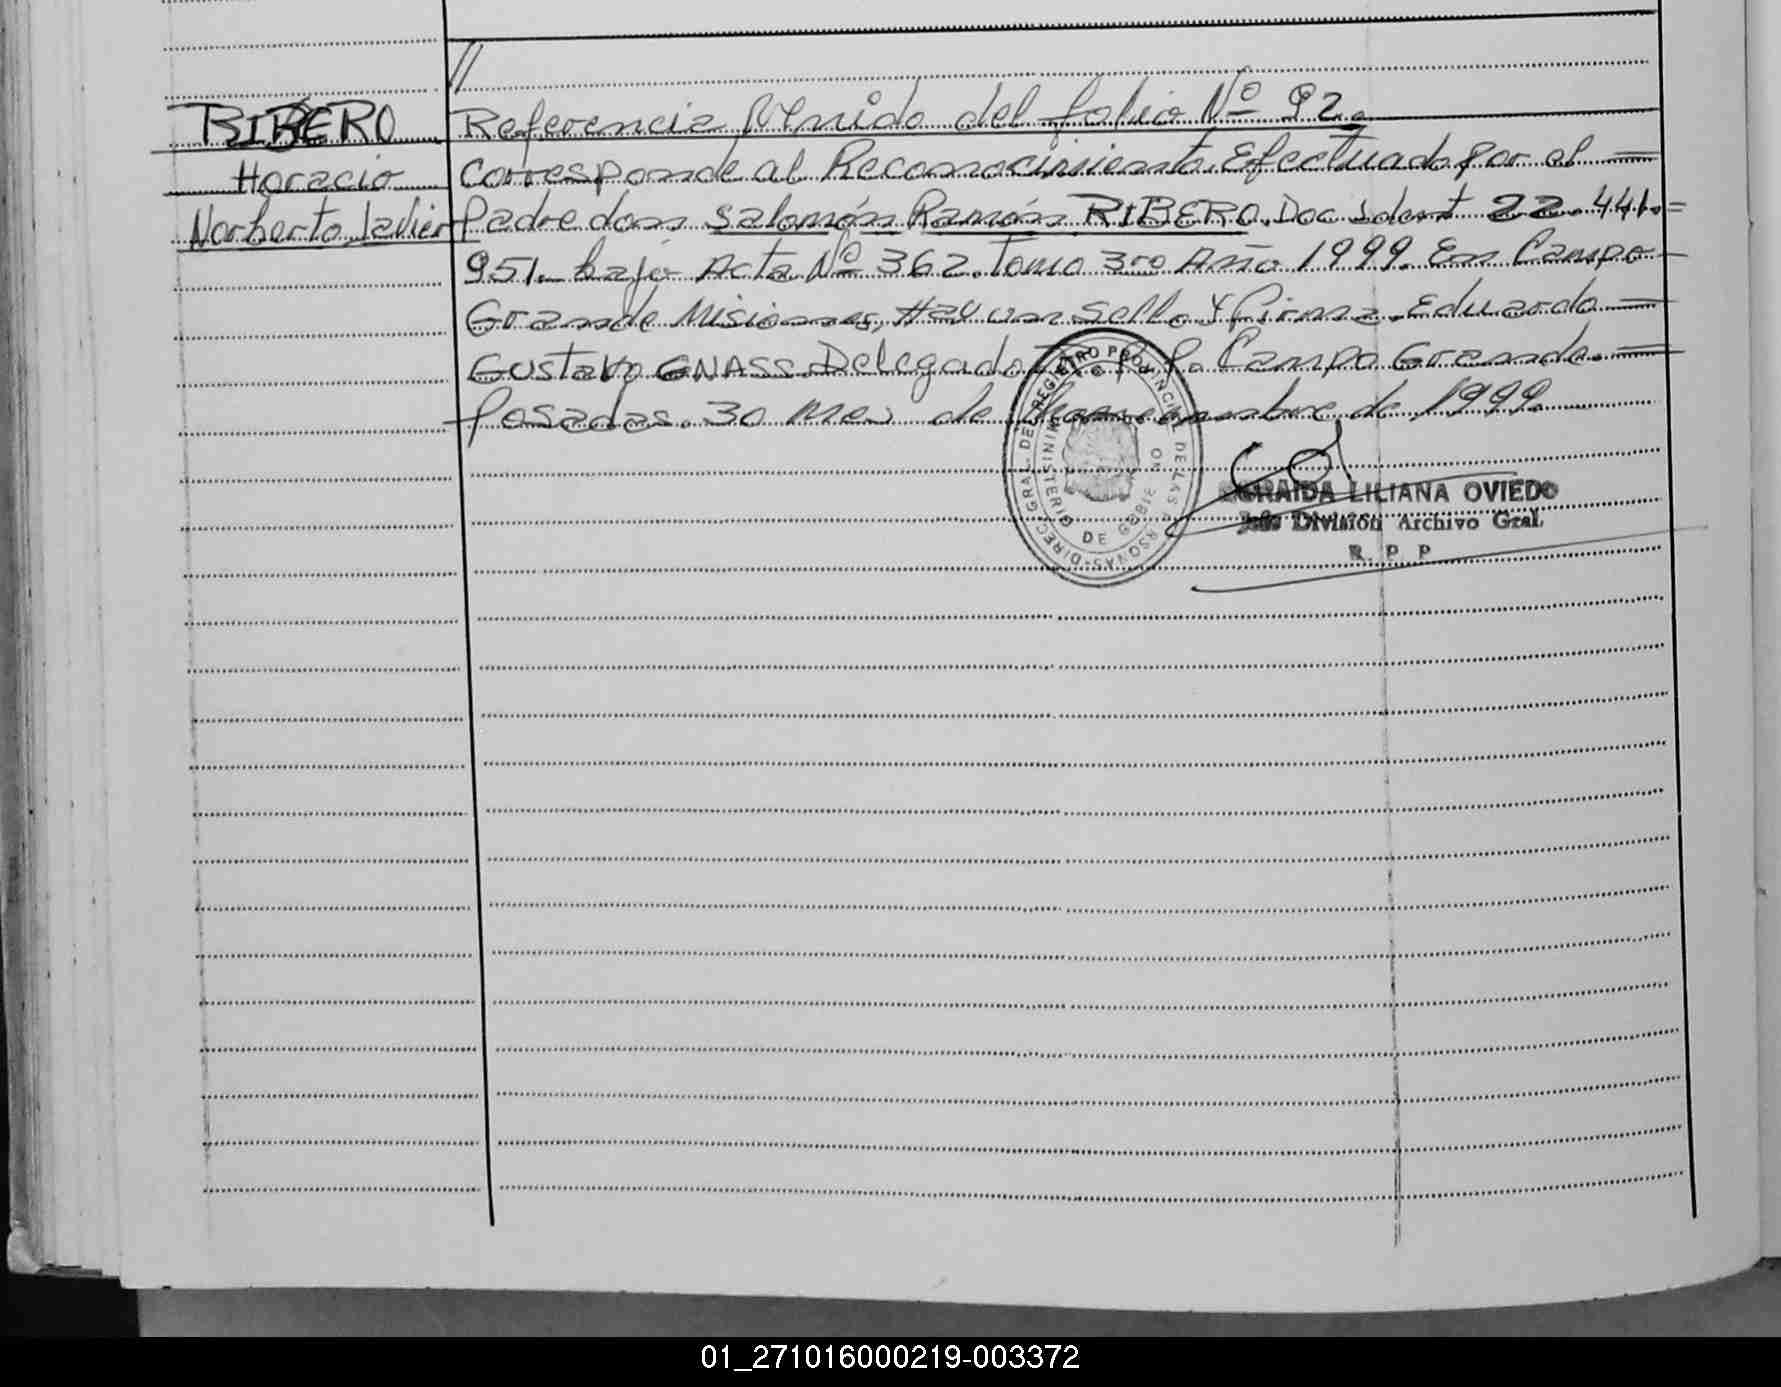 //
RIBERO
Horacio
Norberto Javier
Referencia Venida del folio Nº 92.
Corresponde al Reconocimiento Efectuado por el =
Padre don Salomón Ramón RIBERO. Doc Ident 22.441.=
951. bajo Acta Nº 362. Tomo 3ro Año 1999. En Campo -
Grande Misiones, Hay un Sello y firma. Eduardo =
Gustavo GNASS. Delegado Campo Grande. =
Posadas. 30 Mes de de 1999.
DIREC. GRAL. DEL REGISTRO PROVINCIAL DE LAS PERSONAS
MINISTERIO DE GOBIERNO
LILIANA OVIEDO
Jefe División Archivo Gral.
R. P. P
01_271016000219-003372